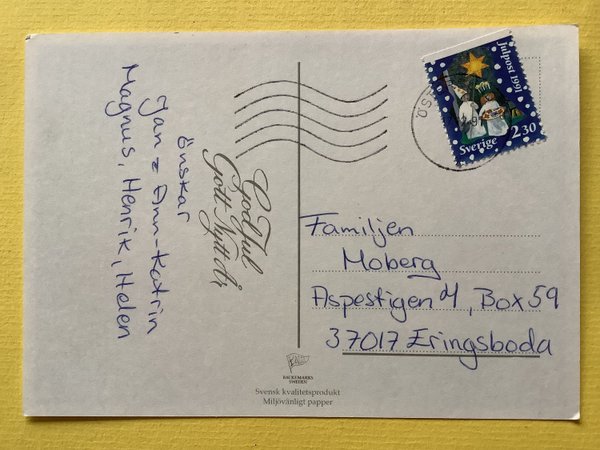 God Jul
Gott Nytt År
önskar
Jan & Ann-Katrin
Magnus, Henrik, Helen
Julpost 1991
Sverige 2.30
Familjen
Moberg
Aspestigen 4, Box 59
37017 Eringsboda
BACKEMARKS
SWEDEN
Svensk kvalitetsprodukt
Miljövänligt papper